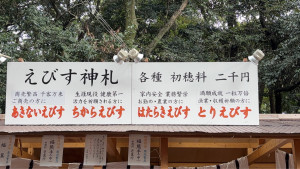 えびす神札
商売繁昌 千客万来
ご商売の方に
あきないえびす
生涯現役 健康第一
活力を祈願される方に
ちからえびす
各種 初穂料 二千円
家内安全 業務繁栄
お勤め・農業の方に
はたらきえびす
満願成就 一粒万倍
漁業・収穫祈願の方に
とりえびす